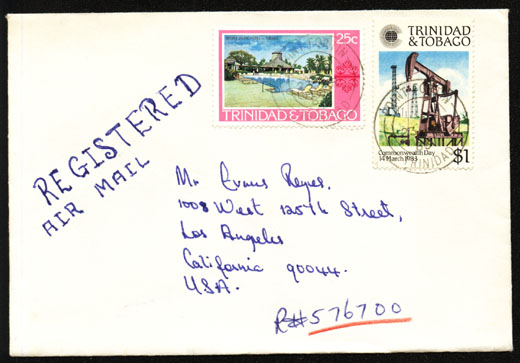 REGISTERED
AIR MAIL
25c
TRINIDAD & TOBAGO
TRINIDAD
& TOBAGO
Commonwealth Day
14 March 1983
$1
TRINIDAD
Mr Evans Reyes,
1008 West 125th Street,
Los Angeles
California 90044.
U.S.A.
R# 576700